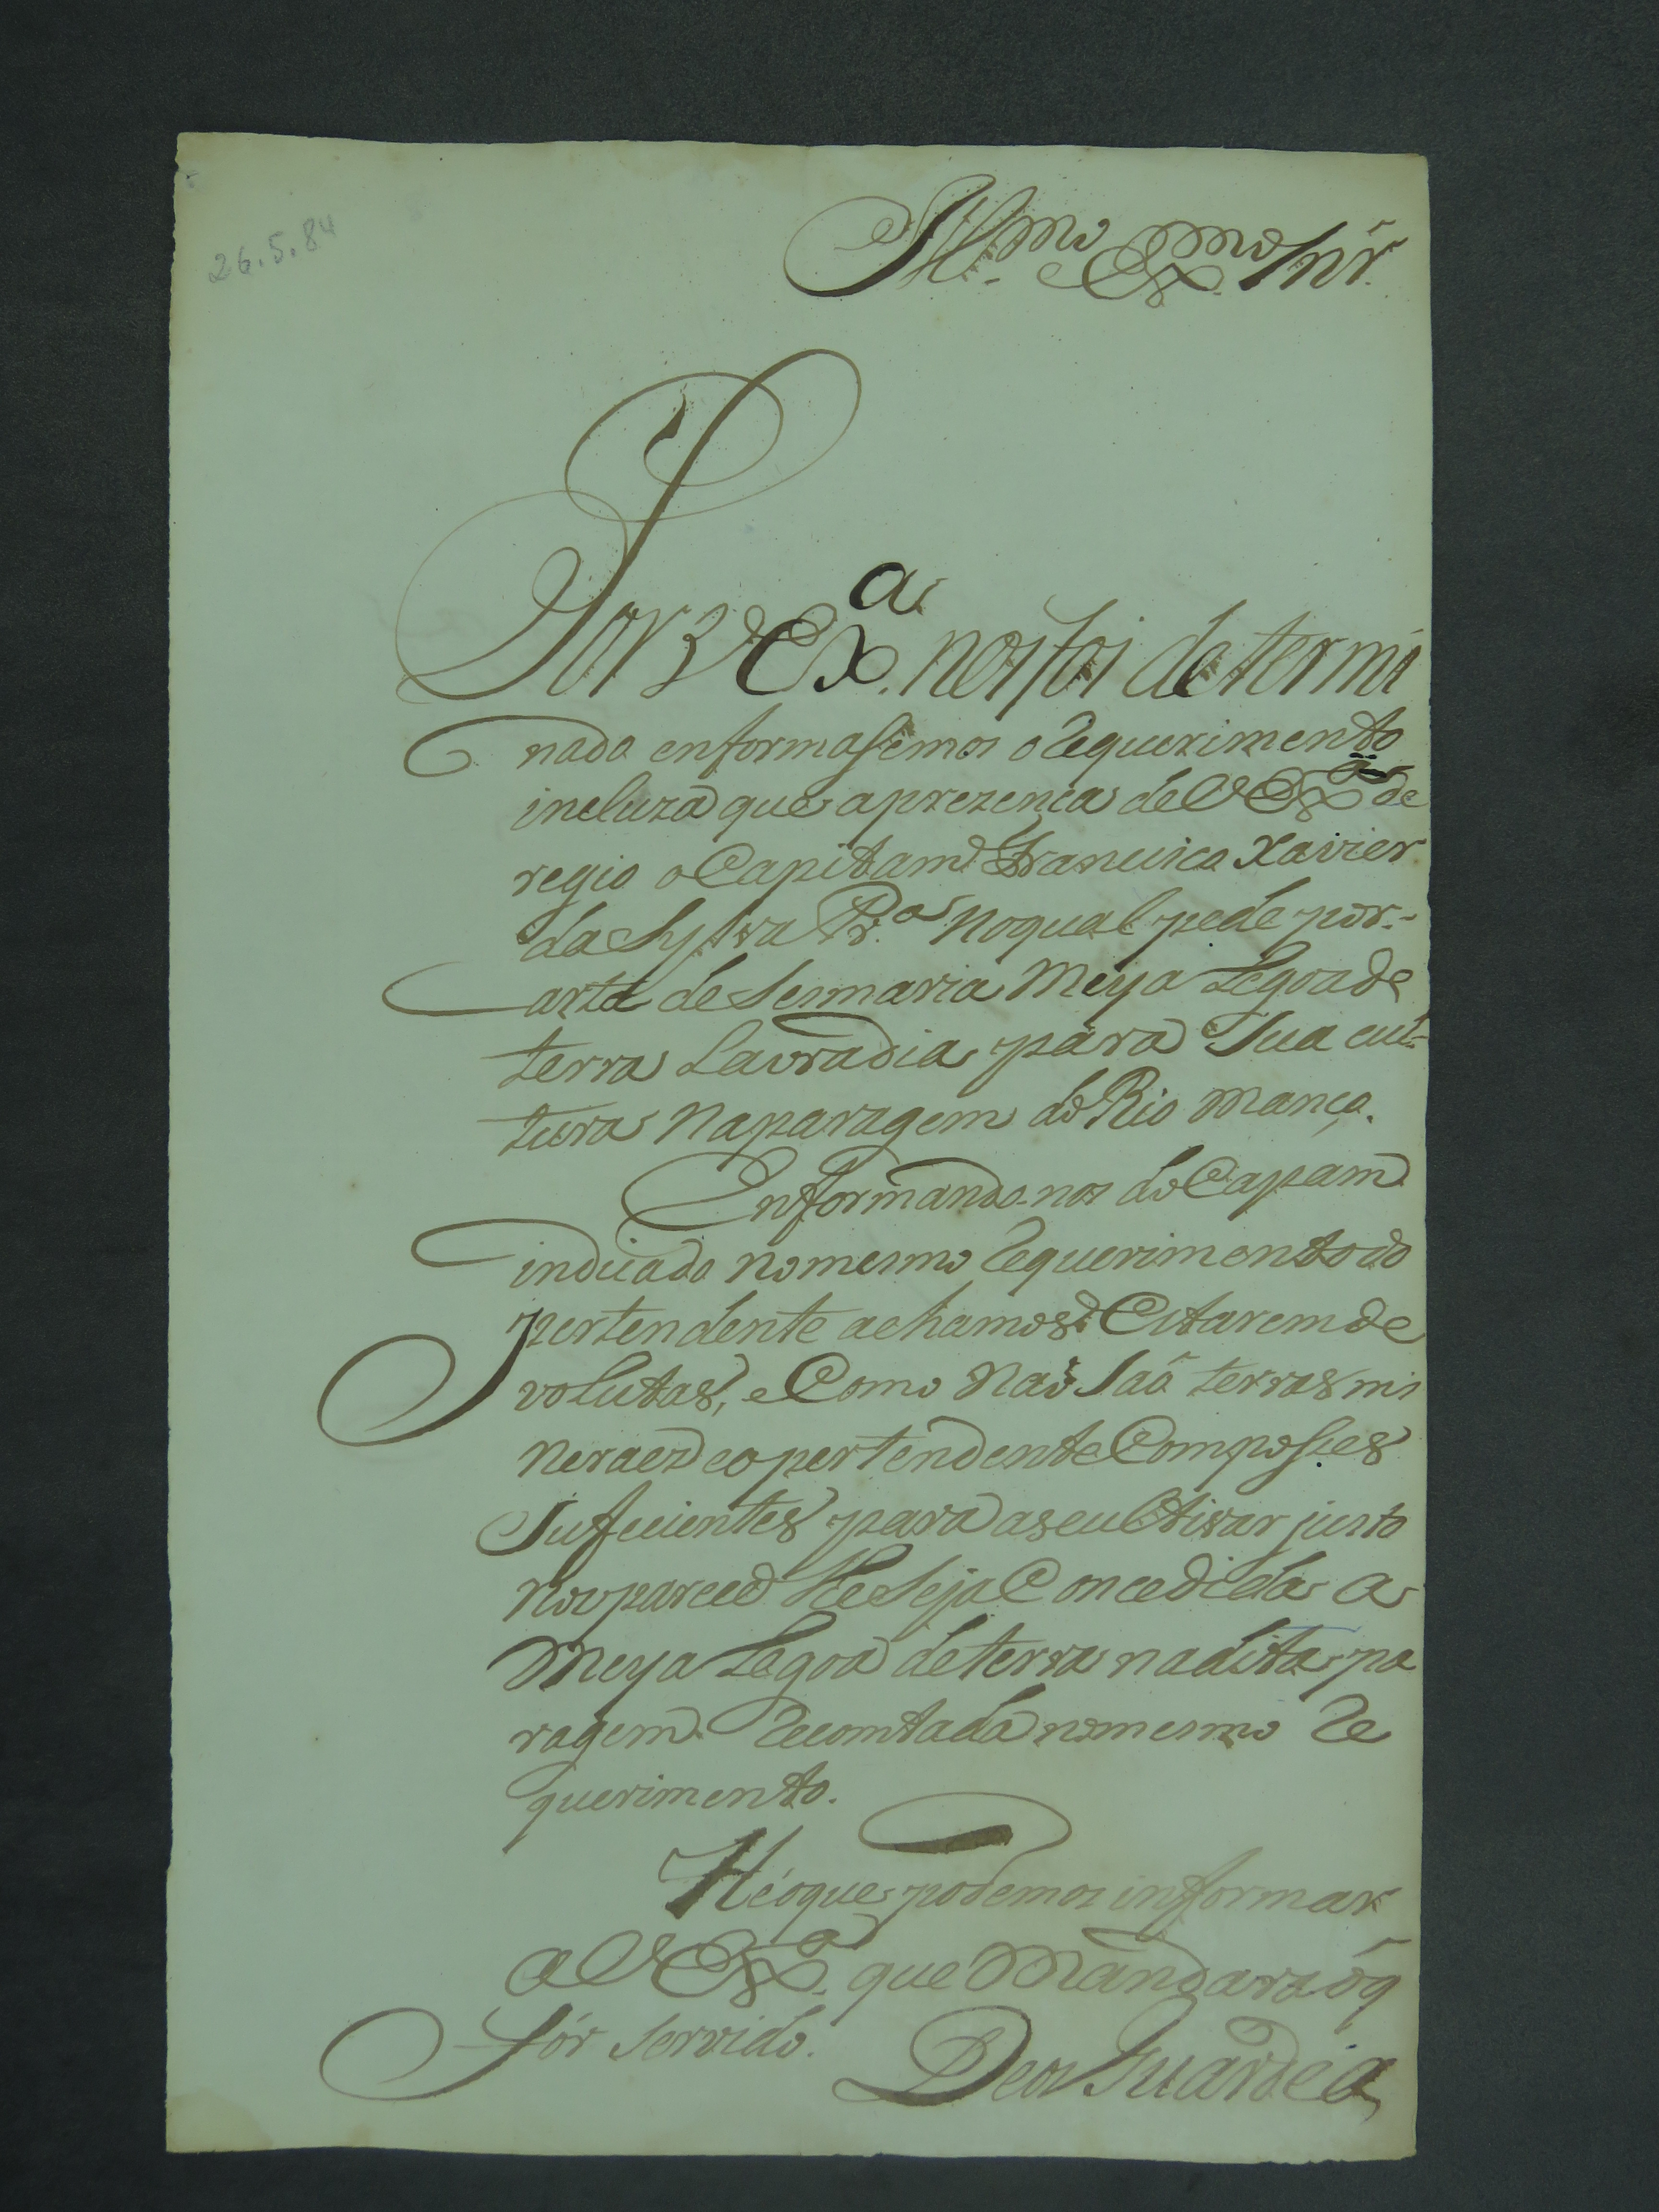 26.5.84
Ill.mo Ex.mo Snr.
Por V Ex.a nos foi determi
nado enformasemos o Requerimento
incluzo que a prezença de V Ex.a de
regio o Capitam Francisco Xavier
da Sylva Pr.a no qual pede por
carta de Sesmaria Meya Legoa de
terra Lavradia para Sua cul-
tura Na paragem do Rio Manço.
Enformando-nos do Capam
indicado no mesmo Requerimento do
pertendente achamos Estarem de
volutas, e Como Naõ Saõ terras mi
neraes e o pertendente Com posses
Sufucientes para as cultivar justo
nos parece Se Seja Concedida a
Meya Legoa de terra na dita pa
ragem Recomtada no mesmo Re
querimento.
He o que podemos informar
a V Ex.a que Mandará o q
fór Servido. Deos Guarde a